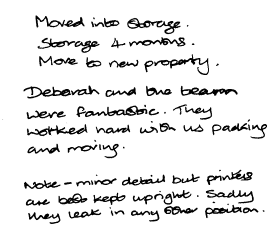 Moved into storage.
Storage 4 months.
Move to new property.
Deborah and the team
were fantastic. They
worked hard with us packing
and moving.
Note - minor detail but printers
are best kept upright. Sadly
they leak in any other position.